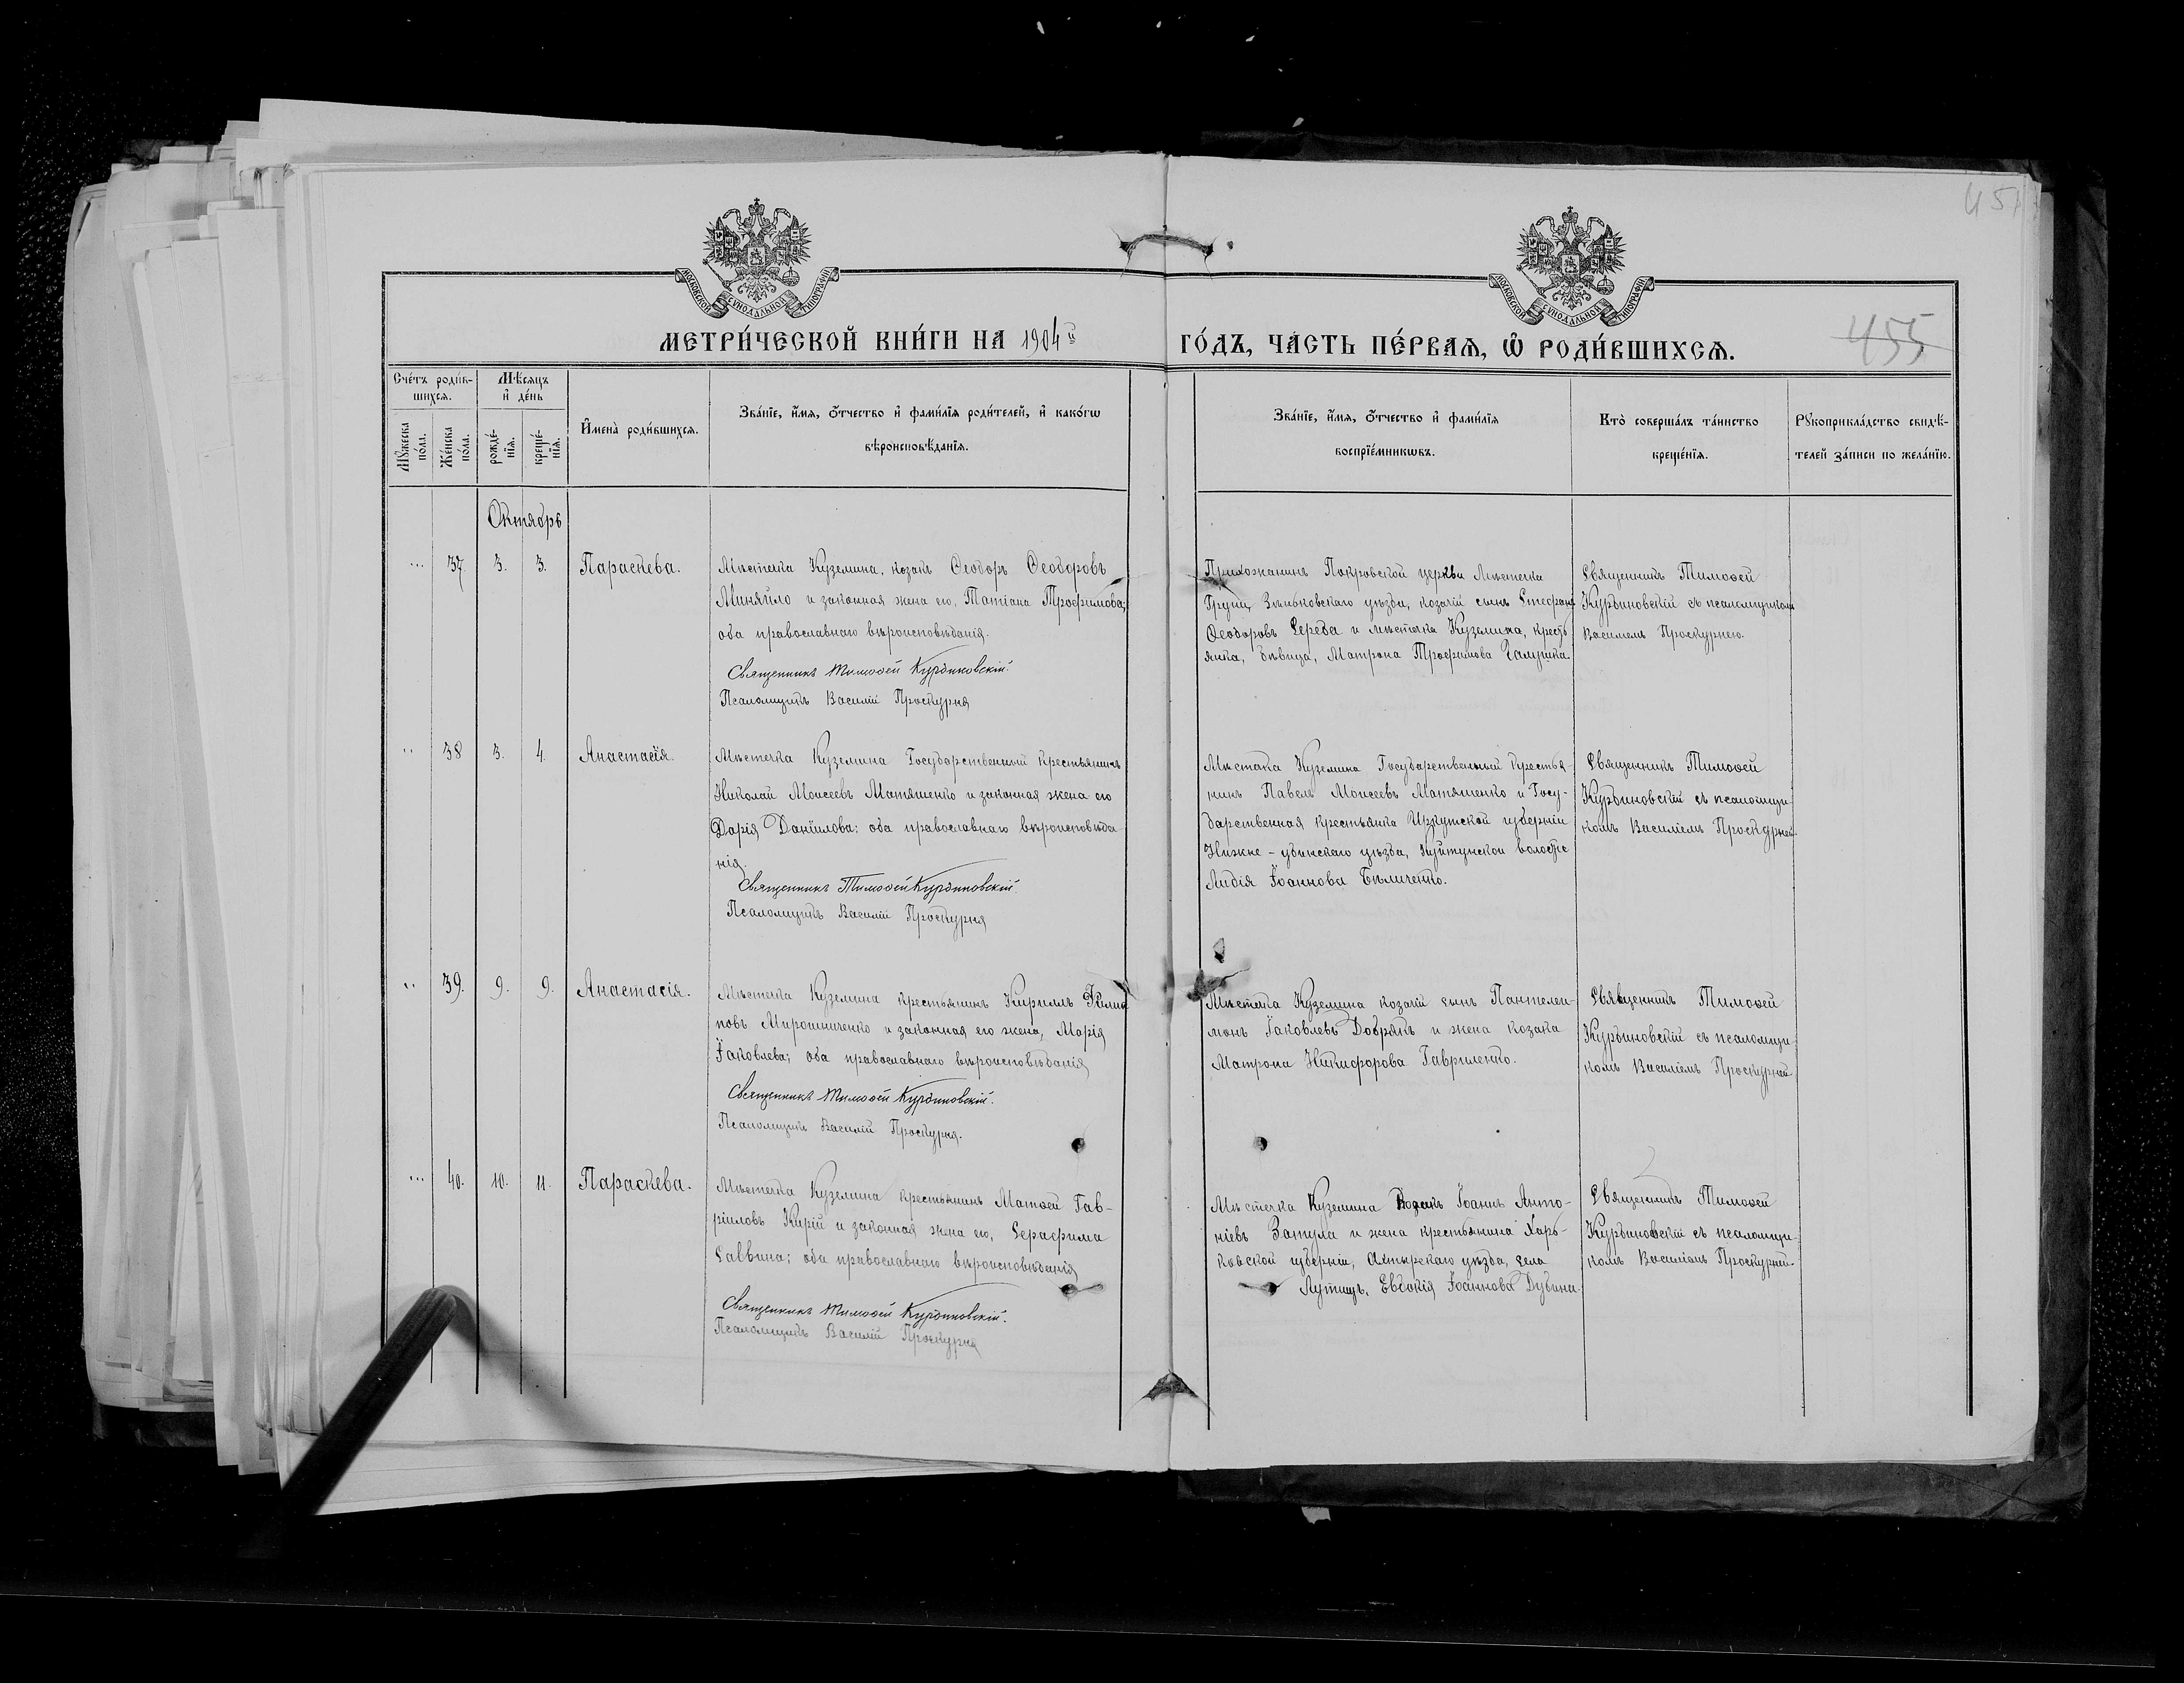 451
МОСКОВСКОЙ СѴНОДАЛЬНОЙ ТИПОГРАФІИ
МОСКОВСКОЙ СѴНОДАЛЬНОЙ ТИПОГРАФІИ
МЕТРИ́ЧЕСКОЙ КНИ́ГИ НА 1904й ГО́ДЪ, ЧА́СТЬ ПЕ́РВАѦ, Ѽ РОДИ́ВШИХСѦ.
455
Сче́тъ роди́в-
шихсѧ.
Мꙋ́жеска по́ла.
Же́нска по́ла.
Мѣ́сѧцъ
и҆ де́нь
рожде́-
нїѧ.
креще́-
нїѧ.
И҆мена̀ роди́вшихсѧ.
Зва́нїе, и҆́мѧ, ѻ҆́тчество и҆ фами́лїѧ роди́телей, и҆ како́гѡ
вѣроисповѣ́данїѧ.
Зва́нїе, и҆́мѧ, ѻ҆́тчество и҆ фами́лїѧ
воспрїе́мникѡвъ.
Кто̀ соверша́лъ та́инство
креще́нїѧ.
Рꙋкоприкла́дство свидѣ́-
телей за́писи по жела́нїю.
Октябрь
... 37. 3. 3. Параскева.
Мѣстечка Куземина, козакъ Ѳеодоръ Ѳеодоровъ
Миняйло и законная жена его, Татіана Трофимова;
оба православнаго вѣроисповѣданія.
Священникъ Тимоѳей Курдиновскій.
Псаломщикъ Василій Проскурня
Прихожанинъ Покровской церкви Мѣстечка
Груни, Зѣньковскаго уѣзда, козачій сынъ Стефанъ
Ѳеодоровъ Середа и мѣстечка Куземина, кресть
янка, дѣвица, Матрона Трофимова Галушка.
Священникъ Тимоѳей
Курдиновскій съ псаломщикомъ
Василіемъ Проскурнею.
.. 38 3. 4. Анастасія.
Мѣстечка Куземина Государственный крестьянинъ
Николай Моисеевъ Матяшенко и законная жена его
Дарія Даніилова; оба православнаго вѣроисповѣда
нія.
Священникъ Тимоѳей Курдиновскій.
Псаломщикъ Василій Проскурня
Мѣстечка Куземина Государственный Крестья-
нинъ Павелъ Моисеевъ Матяшенко и Госу-
дарственная крестьянка Иркутской губерніи
Нижне-удинскаго уѣзда, Куйтунской волости
Лидія Іоаннова Бѣличенко.
Священникъ Тимоѳей
Курдиновскій съ псаломщи-
комъ Василіемъ Проскурней.
.. 39. 9. 9. Анастасія.
Мѣстечка Куземина крестьянинъ Кириллъ Филип
повъ Мирошниченко и законная его жена, Марія
Іаковлева; оба православнаго вѣроисповѣданія
Священникъ Тимоѳей Курдиновскій.
Псаломщикъ Василій Проскурня.
Мѣстечка Куземина козачій сынъ Пантелеи-
монъ Іаковлевъ Добрякъ и жена козака
Матрона Никифорова Гавриленко.
Священникъ Тимоѳей
Курдиновскій съ псаломщи-
комъ Василіемъ Проскурней
... 40. 10. 11. Параскева.
Мѣстечка Куземина крестьянинъ Матѳей Гав-
ріиловъ Кирій и законная жена его, Серафима
Саввина; оба православнаго вѣроисповѣданія
Священникъ Тимоѳей Курдиновскій.
Псаломщикъ Василій Проскурня
Мѣстечка Куземина Козакъ Іоаннъ Анто-
ніевъ Запула и жена крестьянина Харь-
ковской губерніи, Ахтырскаго уѣзда, села
Лутищъ, Евдокія Іоаннова Дубина.
Священникъ Тимоѳей
Курдиновскій съ псаломщи-
комъ Василіемъ Проскурней.